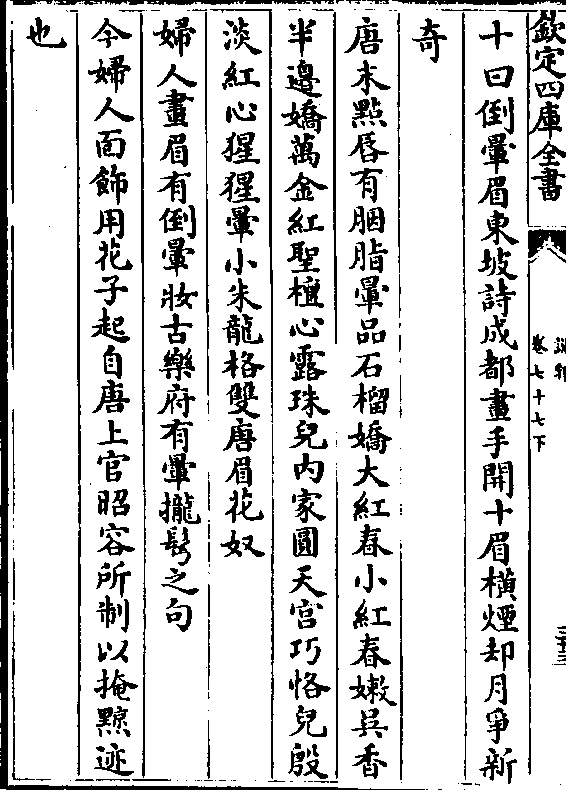 欽定四庫全書
說郛
卷七十七下
十曰倒暈眉東坡詩成都畫手開十眉橫煙却月爭新
奇
唐末點唇有胭脂暈品石榴嬌大紅春小紅春嫩吳香
半邊嬌萬金紅聖檀心露珠兒内家圓天宫巧恪兒殷
淡紅心猩猩暈小朱龍格雙唐眉花奴
婦人畫眉有倒暈妝古樂府有暈攏鬂之句
今婦人面飾用花子起自唐上官昭容所制以掩黥迹
也